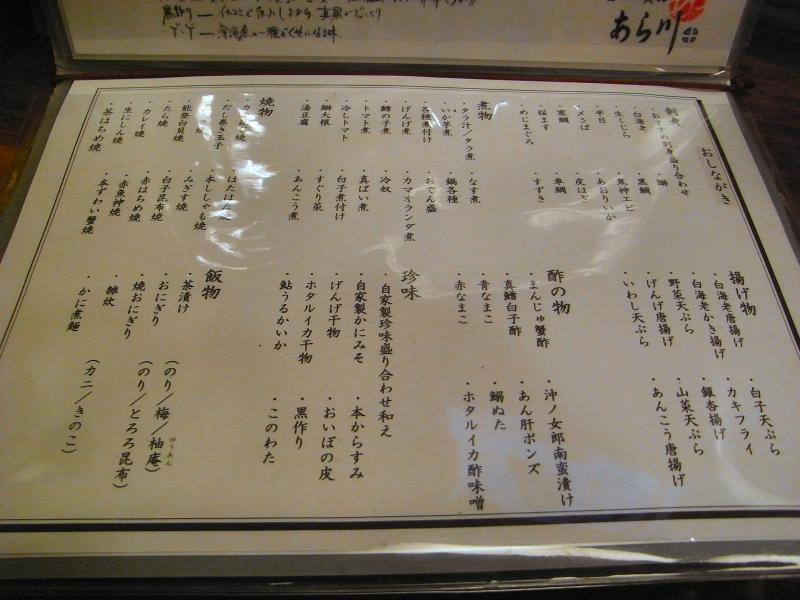 あら川
おしながき
刺身
・おすすめ刺身盛り合わせ
・白海老
・鰤
・生くじら
・黒鯛
・平目
・寒神エビ
・〆さば
・あおりいか
・寒鯛
・皮はぎ
・桜ます
・車鯛
・めじまぐろ
・すずき
煮物
・タラ汁/タラ煮
・なす煮
・いか芋煮
・鍋各種
・各種煮付け
・おでん盛
・げんげ煮
・カマオランダ煮
・鱈の子煮
・冷奴
・トマト煮
・真ばい煮
・冷しトマト
・白子煮付け
・鰤大根
・すぐり菜
・湯豆腐
・あんこう煮
焼物
・だし巻き玉子
・はたはた焼
・本ししゃも焼
・能登白貝焼
・みぎす焼
・たら焼
・白子昆布焼
・カレイ焼
・赤はちめ焼
・生にしん焼
・赤魚神焼
・茶はちめ焼
・本ずわい蟹焼
揚げ物
・白海老唐揚げ
・白子天ぷら
・白海老かき揚げ
・カキフライ
・野菜天ぷら
・銀杏揚げ
・げんげ唐揚げ
・山菜天ぷら
・いわし天ぷら
・あんこう唐揚げ
酢の物
・まんじゅ蟹酢
・沖ノ女郎南蛮漬け
・真鱈白子酢
・あん肝ポンズ
・青なまこ
・鰯ぬた
・赤なまこ
・ホタルイカ酢味噌
珍味
・自家製珍味盛り合わせ和え
・自家製かにみそ
・本からすみ
・げんげ干物
・おいぼの皮
・ホタルイカ干物
・黒作り
・鮎うるかいか
・このわた
飯物
・茶漬け
・おにぎり (のり/梅/柚庵)
ゆうあん
・焼おにぎり (のり/とろろ昆布)
・雑炊
・かに煮麺 (カニ/きのこ)